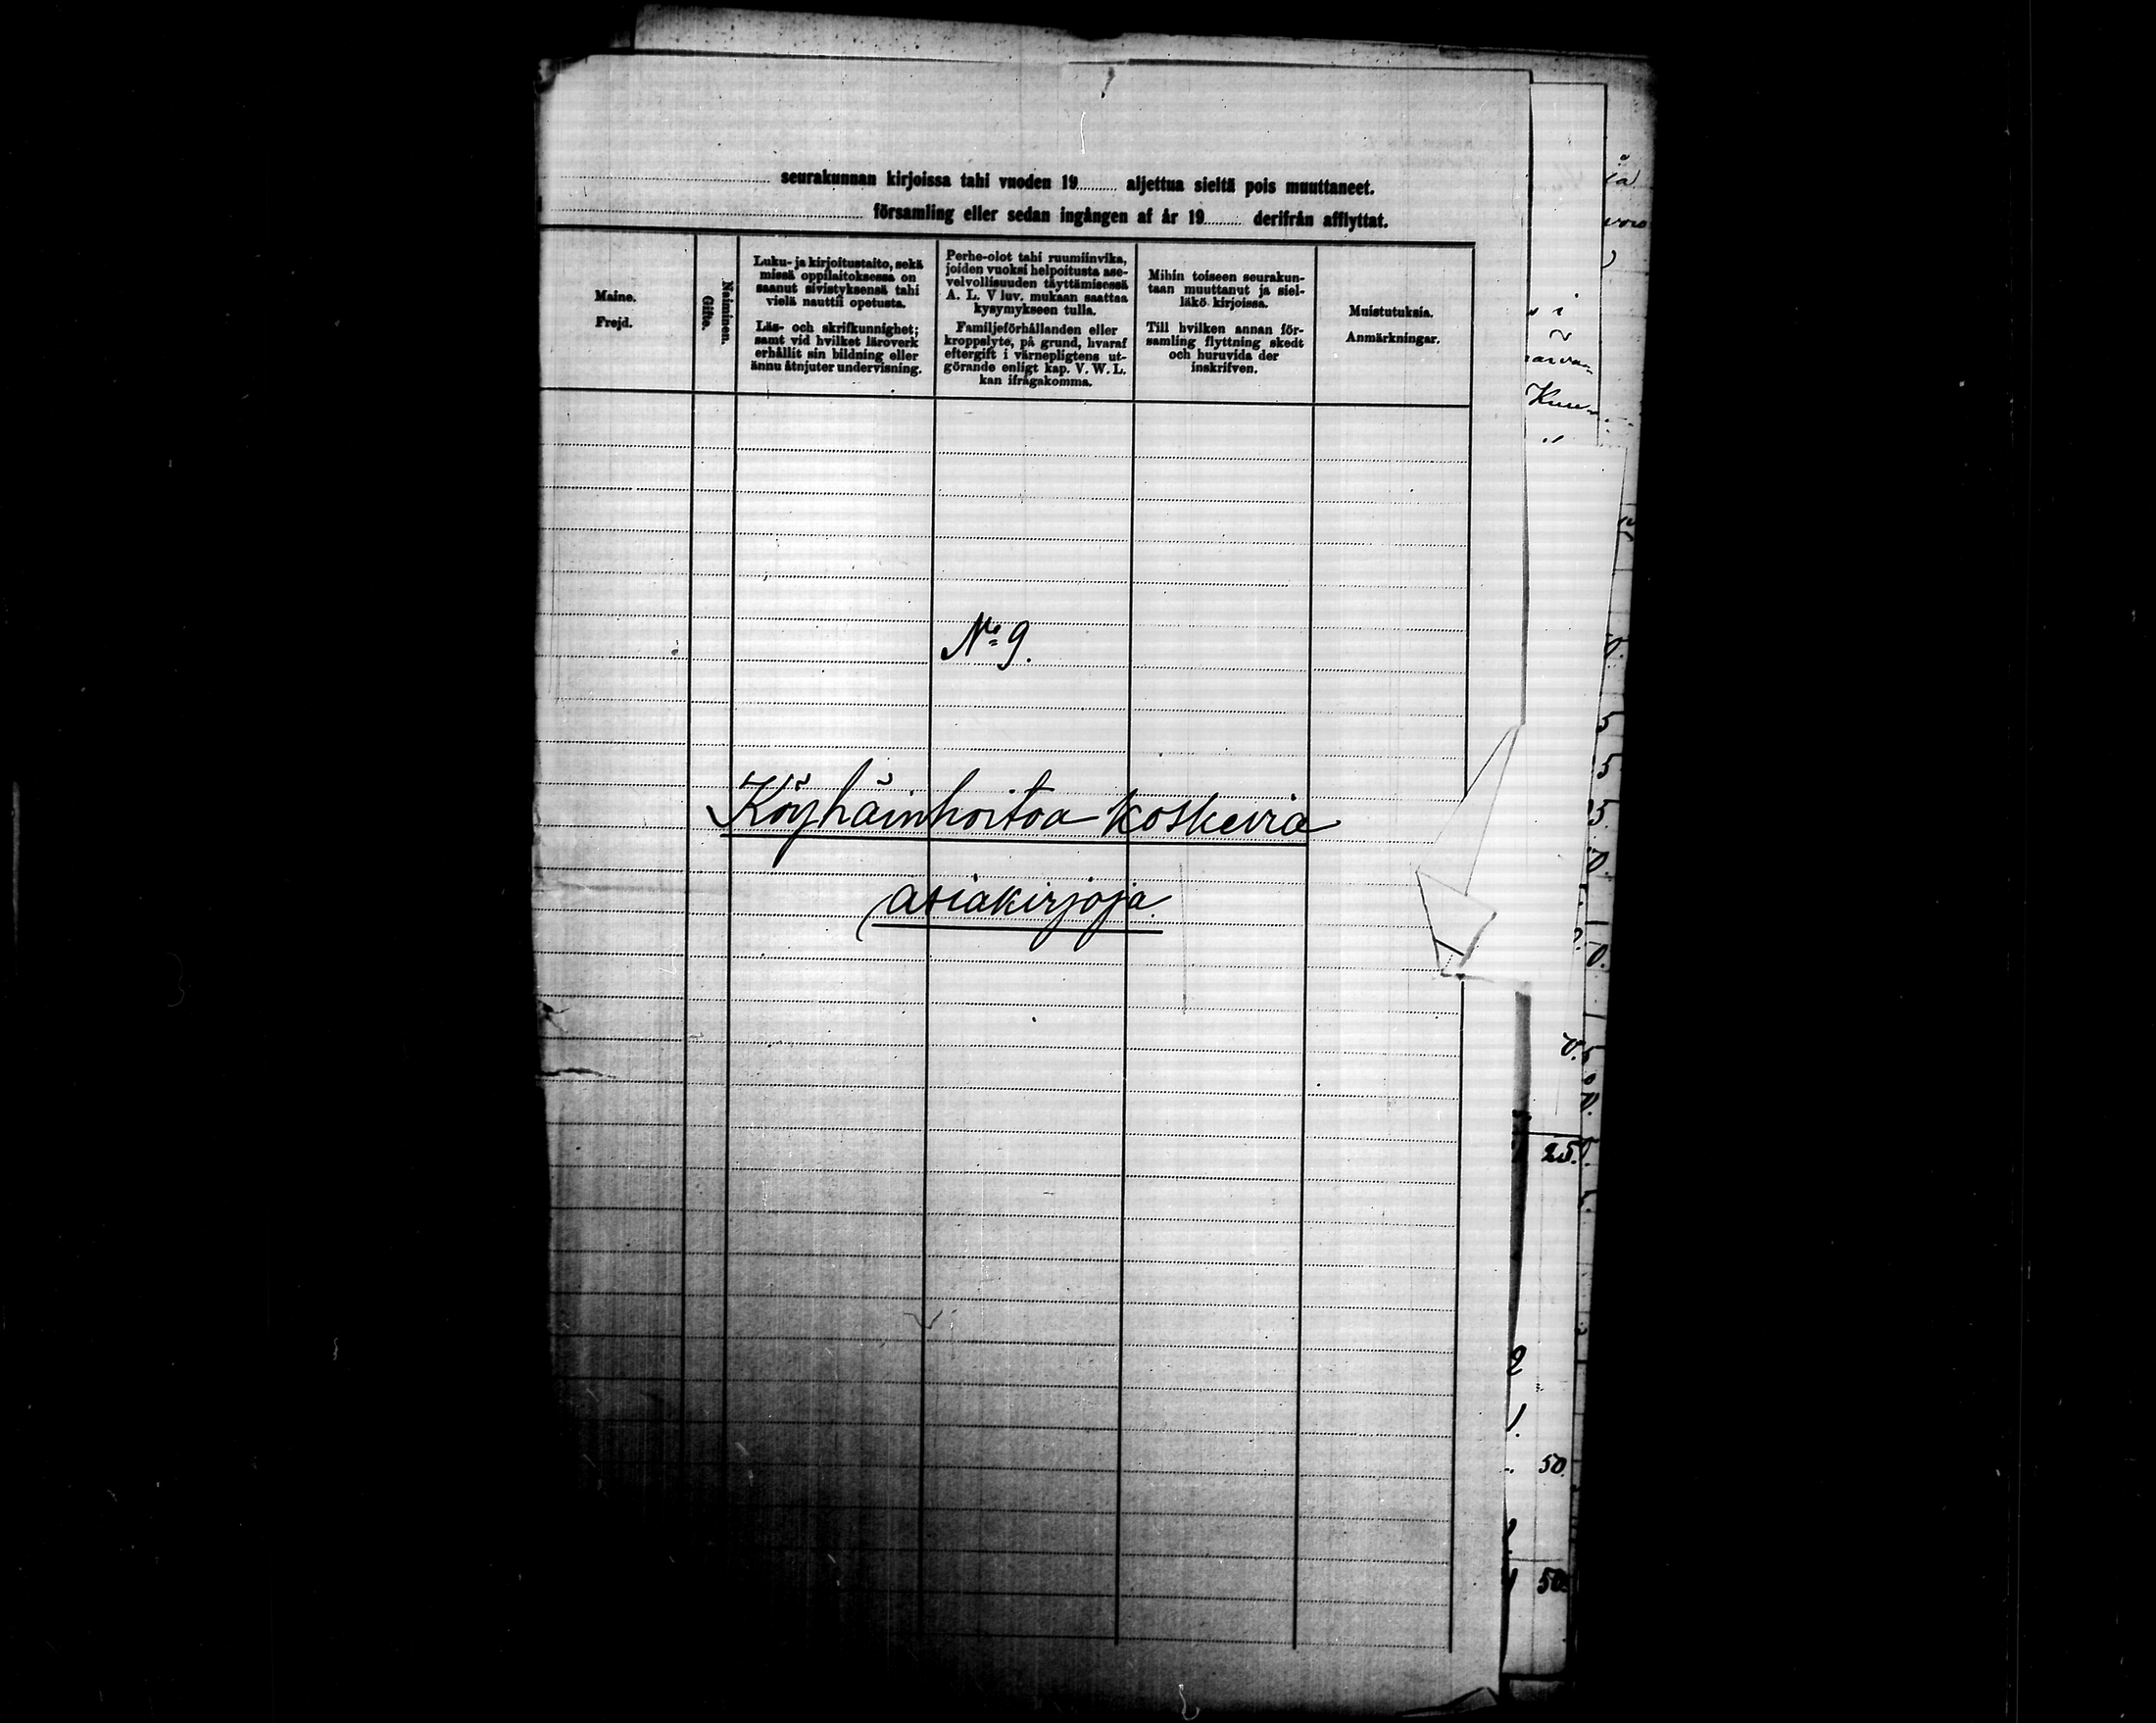 seurakunnan kirjoissa tahi vuoden 19........ aljettua sieltä pois muuttaneet.
församling eller sedan ingången af år 19........ derifrån afflyttat.
Maine.
Frejd.
Naiminen.
Gifte.
Luku- ja kirjoitustaito, sekä
missä oppilaitoksessa on
saanut sivistyksensä tahi
vielä nauttii opetusta.
Läs- och skrifkunnighet;
samt vid hvilket läroverk
erhållit sin bildning eller
ännu åtnjuter undervisning.
Perhe-olot tahi ruumiinvika,
joiden vuoksi helpoitusta ase-
velvollisuuden täyttämisessä
A. L. V luv. mukaan saattaa
kysymykseen tulla.
Familjeförhållanden eller
kroppslyte, på grund, hvaraf
eftergift i värnepligtens ut-
görande enligt kap. V. W. L.
kan ifrågakomma.
Mihin toiseen seurakun-
taan muuttanut ja siel-
läkö kirjoissa.
Till hvilken annan för-
samling flyttning skedt
och huruvida der
inskrifven.
Muistutuksia.
Anmärkningar.
No 9.
Köyhäinhoitoa koskevia
asiakirjoja.
25.
50.
50.